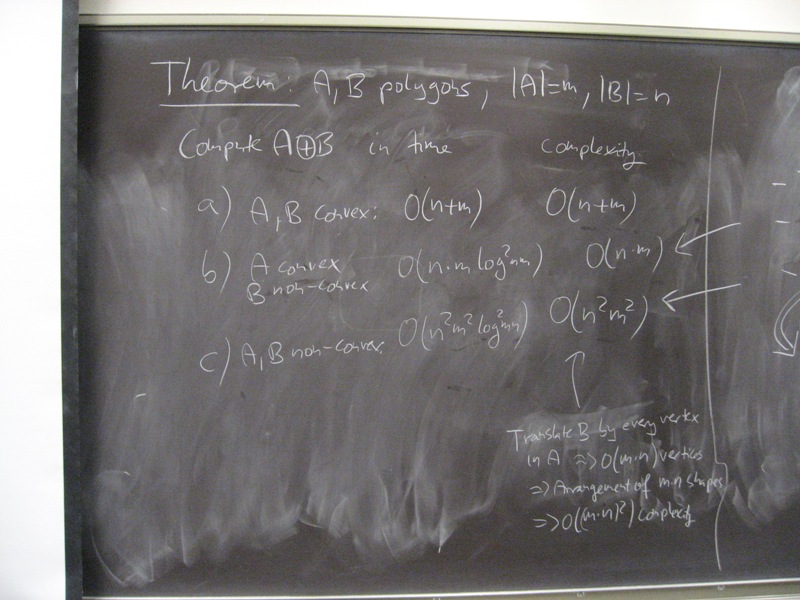 Theorem: A, B polygons, |A|=m, |B|=n
Compute A⊕B in time complexity
a) A, B convex: O(n+m) O(n+m)
b) A convex O(n·m log²nm) O(n·m)
B non-convex
c) A, B non-convex: O(n²m² log²mn) O(n²m²)
Translate B by every vertex
in A => O(m·n) vertices
=> Arrangement of m·n shapes
=> O((m·n)²) complexity